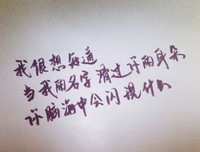 我很想知道
当我的名字滑过你的耳朵
你脑海中会闪现什么